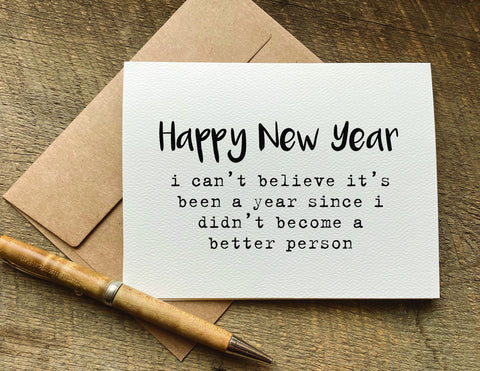 Happy New Year
i can't believe it's
been a year since i
didn't become a
better person